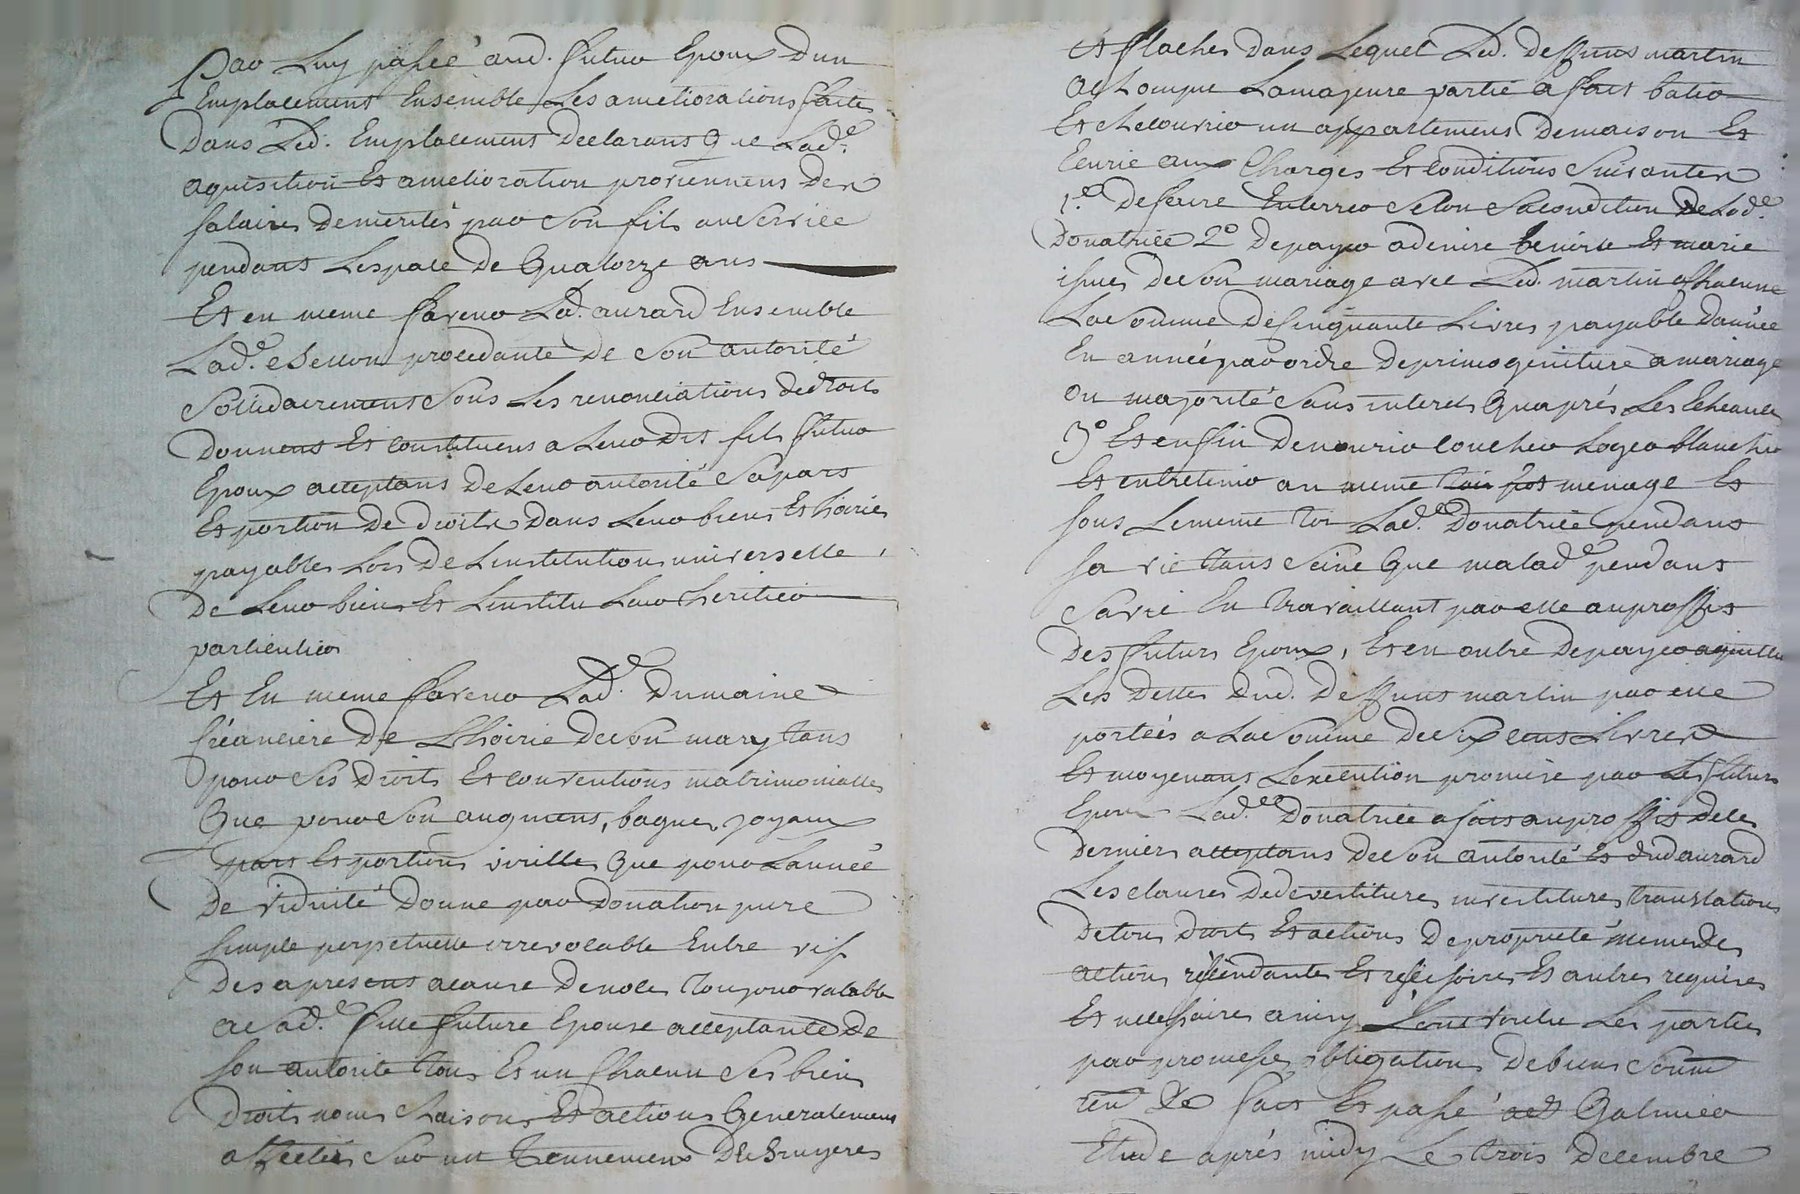 Par luy passée aud. futur Epoux dun
Emplacement Ensemble Les ameliorations faite
Dans Led. Emplacement Declarant Que Lad.e
aquisition Et amelioration proviennent Des
salaires demerités par son fils au service
pendant Lespace de Quatorze ans
Et en meme faveur Led. aurard Ensemble
Lad.e procedante de son autorité
Sollidairement sous Les renonciations de droit
Donnent Et constituent a Leur dit fils futur
Epoux acceptant de Leur autorité sa part
Et portion de droits Dans Leur biens Et hoiries
payables Lors De Linstitution universelle
De Leur biens Et Linstitu Leur heritier
particulier
Et En meme faveur Lad.e Dumaine
Créanciere De Lhoirie de son mary tant
pour ses Droits Et conventions matrimonialles
Que pour son augment, bagues, joyaux
part Et portion virille Que pour Lannée
De viduité Donne par Donation pure
simple perpetuelle irrevocable Entre vif
Des apresent acause de noces Toujour valable
a Sad.e fille future Epouse acceptante De
son autorité tous Et un chacun ses biens
Droits noms Raisons Et actions Generalement
affectés sur un Tennement De Bruyeres
Et flaches Dans Lequel Led. deffunt martin
a Lomque Lamajeure partie a fait batir
Et checouvrir un appartement De maison Et
Ecurie aux Charges Et conditions suivantes
1.e De faire Enterrer selon sa condition De Lad.e
Donatrice 2.o De payer a denise benoite Et marie
issues de son mariage avec Led. martin a chacune
La somme de cinquante Livres payable dannée
En année par ordre de primogeniture a mariage
ou majorité sans interets Quaprés Les Echeances
3.o Et enfin De nourrir coucher Loger blanchir
Et entretenir au meme pot menage Et
sous Le meme toi Lad.e Donatrice pendant
sa vie tant seine Que malade pendant
sa vie En travaillant par elle au proffit
Des futurs Epoux, Et en outre De payer aquitter
Les Dettes dud. Deffunt martin par elle
portées a La somme De six cens Livres
Et moyenant Lexecution promise par Les futurs
Epoux Lad.e Donatrice a fait au proffit de ces
Derniers acceptants de son autorité Et dud aurard
Les clauses De devestitures investitures translations
De tous droits Et actions De proprieté memes de
actions récindantes Et réscisoires Et autres requises
Et necessaires ainsy Lont voulu Les parties
par promesse obligation De biens soum
ren.. &c fait Et passé a Galmier
Etude aprés midy Le trois Decembre